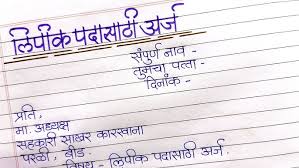 लिपीक पदासाठी अर्ज
संपुर्ण नाव -
तुमचा पत्ता -
दिनांक -
प्रति,
मा. अध्यक्ष
सहकारी साखर कारखाना
परळी, बीड
विषय - लिपीक पदासाठी अर्ज.